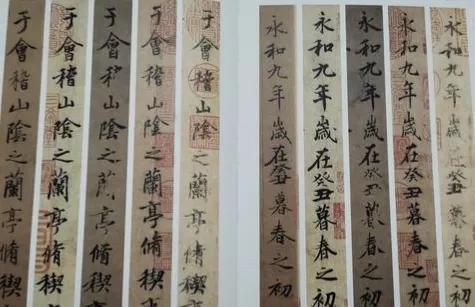 永和九年歲在癸丑暮春之初
永和九年歲在癸丑暮春之初
永和九年歲在癸丑暮春之初
永和九年歲在癸丑暮春之初
永和九年歲在癸丑暮春之初
于會稽山陰之蘭亭脩禊
于會稽山陰之蘭亭脩禊
于會稽山陰之蘭亭脩禊
于會稽山陰之蘭亭脩禊
于會稽山陰之蘭亭脩禊